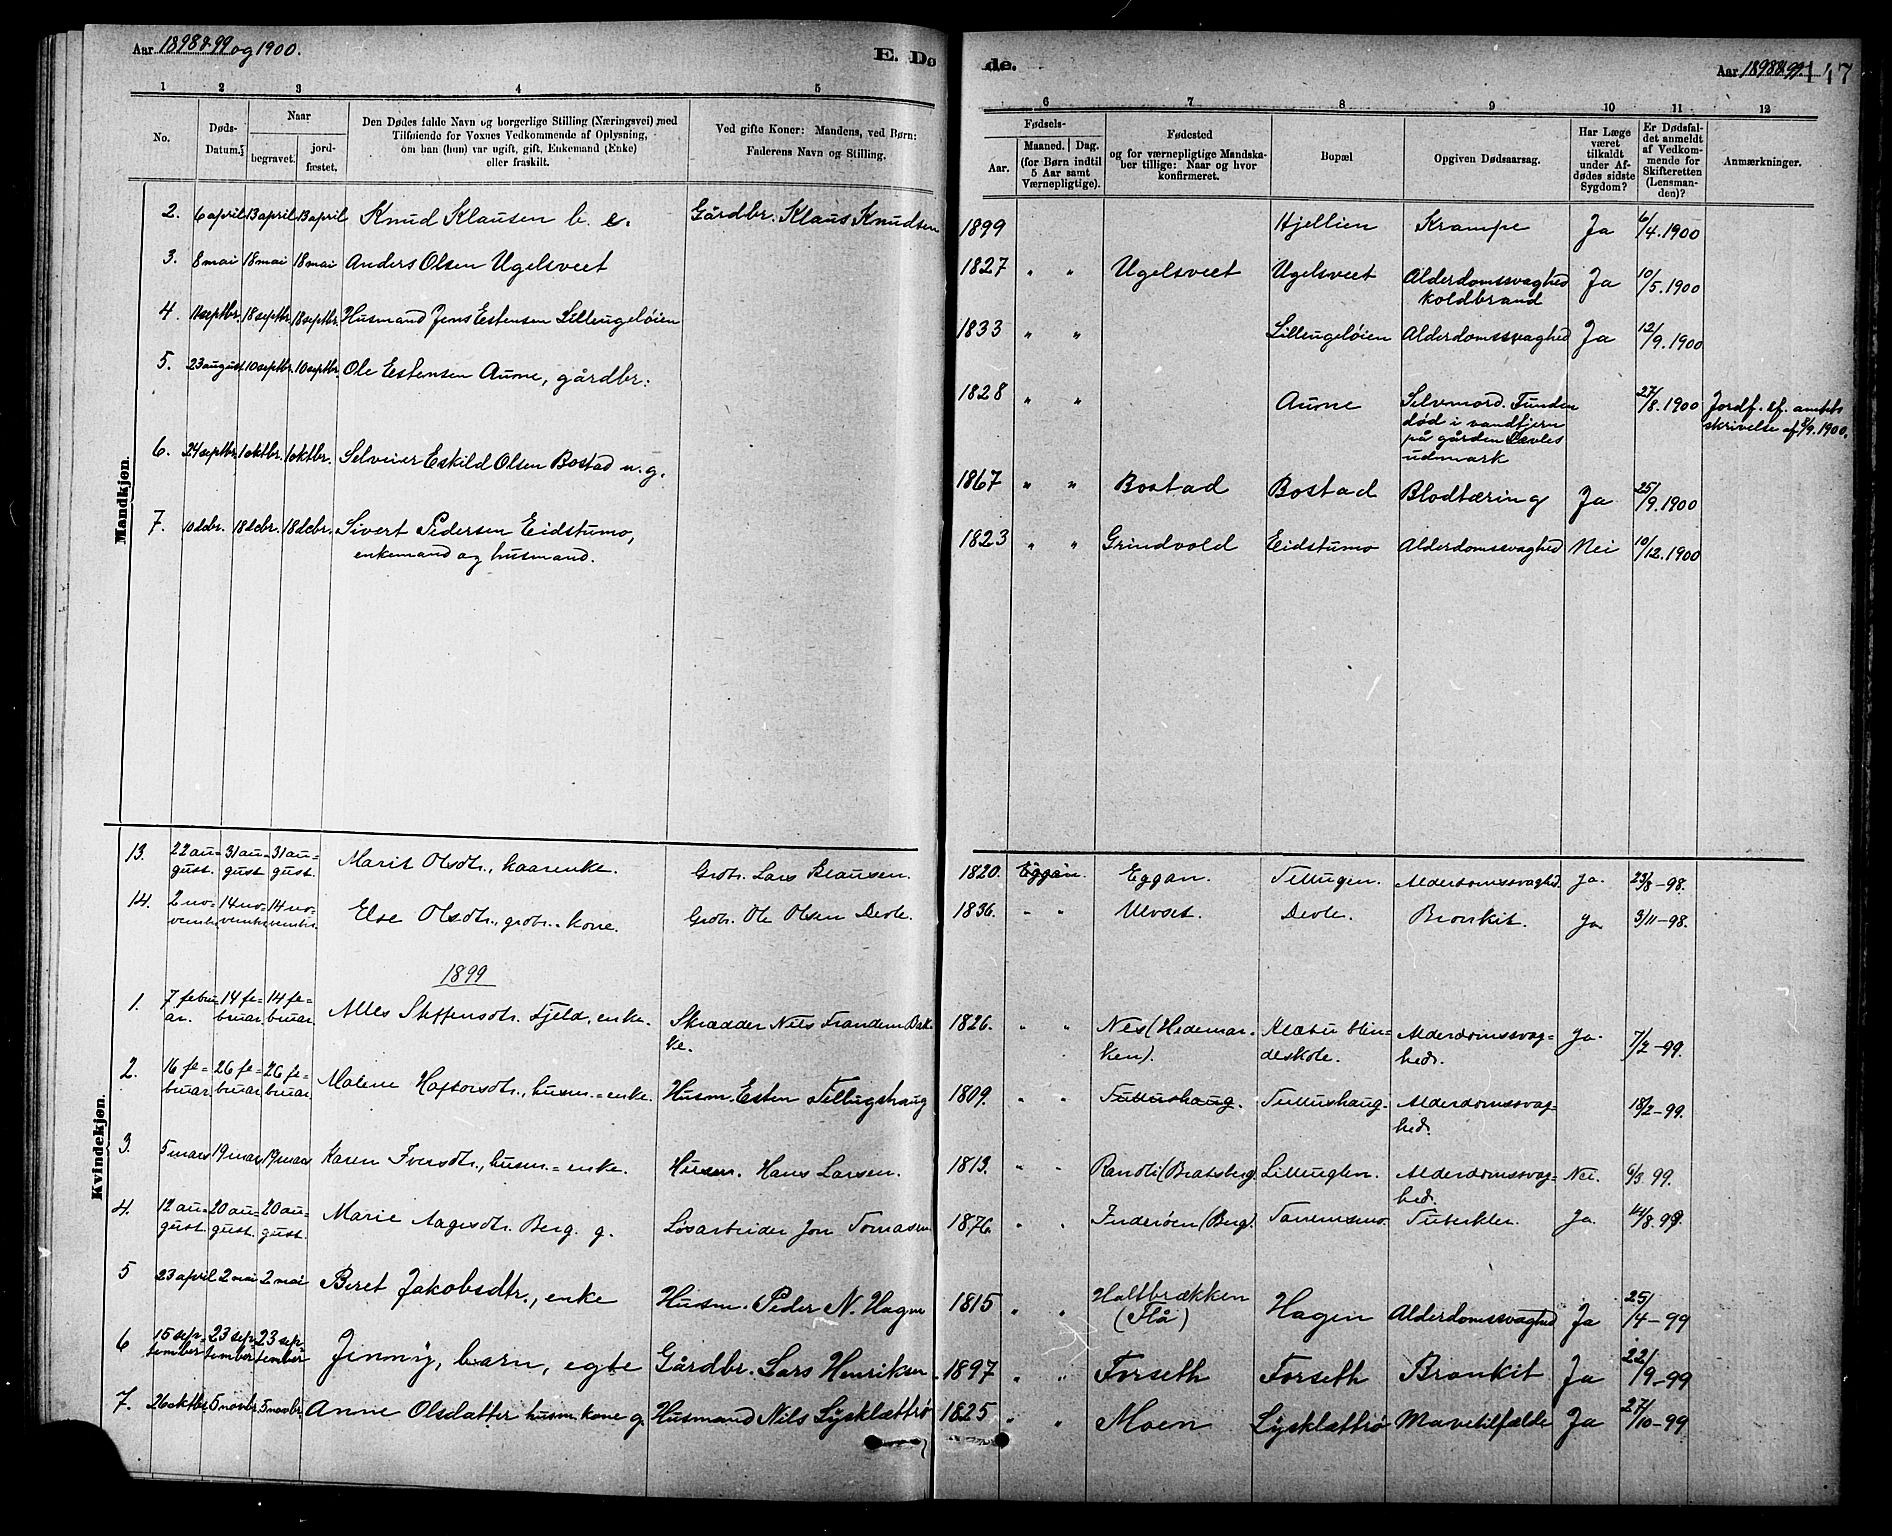 Aar 1898 & 99 og 1900.
E. Dø
de.
Aar 1898 & 99.
147
1 2 3 4 5
6 7 8 9 10 11 12
No.
Døds-
Datum.
Naar
begravet.
jord-
fæstet.
Den Dødes fulde Navn og borgerlige Stilling (Næringsvei) med
Tilføiende for Voxnes Vedkommende af Oplysning,
om han (hun) var ugift, gift, Enkemand (Enke)
eller fraskilt.
Ved gifte Koner: Mandens, ved Børn:
Faderens Navn og Stilling.
Fødsels-
Aar.
Maaned. Dag.
(for Børn indtil
5 Aar samt
Værnepligtige).
Fødested
og for værnepligtige Mandska-
ber tillige: Naar og hvor
konfirmeret.
Bopæl
Opgiven Dødsaarsag.
Har Læge
været
tilkaldt
under Af-
dødes sidste
Sygdom?
Er Dødsfal-
det anmeldt
af Vedkom-
mende for
Skifteretten
(Lensman-
den)?
Anmærkninger.
Mandkjøn.
2. 6 april 13 april 13 april Knud Klausen b. e. Gårdbr. Klaus Knudsen 1899 Hjellien Krampe Ja 6/4.1900
3. 8 mai 18 mai 18 mai Anders Olsen Ugelsveet 1827 " " Ugelsveet Ugelsveet Alderdomssvaghed Ja 10/5.1900
koldbrand
4. 11 septbr. 18 septbr. 18 septbr. Husmand Jens Estensen Lilleugeløien 1833 " " Lilleugeløien Alderdomssvaghed Ja 12/9.1900
5. 23 august 10 septbr. 10 septbr. Ole Estensen Aune, gårdbr: 1828 " " Aune Selvmord. Funden 27/8.1900 Jordf. ef. amtets
død i vandtjern skrivelse af 5/9.1900.
på gården Devles
udmark
6. 24 septbr. 1 oktbr. 1 oktbr. Selveier Eskild Olsen Bostad u. g. 1867 " " Bostad Bostad Blodtæring Ja 25/9.1900
7. 10 dcbr. 18 dcbr. 18 dcbr. Sivert Pedersen Eidstumo, 1823 " " Grindvold Eidstumo Alderdomssvaghed Nei 10/12.1900
enkemand og husmand.
Kvindekjøn.
13. 22 au= 31 au= 31 au= Marit Olsdtr., kaarenke. Grdbr. Lars Clausen. 1820. Eggan. Eggan. Tillugen. Alderdomssvaghed. Ja. 23/8-98.
gust. gust gust.
14. 2 no= 14 no= 14 no= Else Olsdtr., grdbr.=kone. Grdbr. Ole Olsen Devle. 1836. " " Ulvset. Devle. Bronkit. Ja. 3/11-98.
vembr. vembr. vembr.
1899
1. 7 febru= 14 fe= 14 fe= Alles Steffensdtr. Fjeld, enke. Skrædder Nils Frandsen Bak= 1826. " " Nes (Hedemar= Klæbu blin= Alderdomssvag= Ja. 7/2-99.
ar. bruar. bruar. ke. ken). deskole. hed.
2. 16 fe= 26 fe= 26 fe= Malene Haftorsdtr., husm.=enke. Husm. Esten Tillugshaug 1809. " " Tullushaug. Tullushaug. Alderdomssvag= 18/2-99.
bruar. bruar. bruar. hed.
3. 5 mars 19 mars 19 mars Karen Iversdtr., husm.=enke. Husm. Hans Larsen. 1813. " " Randli (Bratsberg. Lilleuglen. Alderdomssvag= Nei. 6/3 99.
hed.
4. 12 au= 20 au= 20 au= Marie Aagesdtr. Berg. g. Løsarbeider Jon Tomasen 1876. " " Inderøen (Berg). Tanemsmo. Tuberkler. Ja. 14/8.99.
gust. gust. gust.
5 23 april 2 mai 2 mai Beret Jakobsdtr., enke Husm. Peder N. Hagen 1815 " " Holtbrækken Hagen Alderdomssvaghed Ja 25/4-99
(Flå)
6 15 sep- 23 sep- 23 sep- Jenny, barn, egte Gårdbr. Lars Henriksen 1897 " " Forseth Forseth Bronkit Ja 22/9-99
tember tember tember
7. 26 oktbr. 5 novbr. 5 novbr. Anne Olsdatter husm. kone g. Husmand Nils Lysklættrø 1825 " " Moen Lysklættrø Mavetilfælde Ja 27/10-99